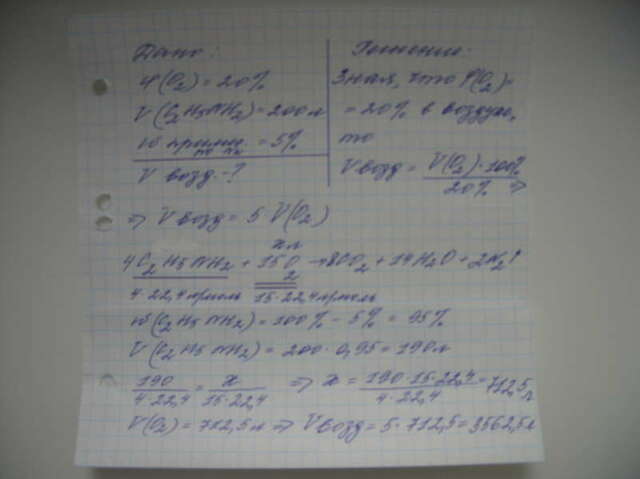 Дано:
φ(O₂) = 20%
V(C₂H₅NH₂) = 200 л
w прим. = 5%
V возд. - ?
Решение:
Зная, что φ(O₂) =
= 20% в воздухе,
то
V возд = V(O₂)·100% / 20% ⇒
⇒ V возд = 5·V(O₂)
x л
4C₂H₅NH₂ + 15O₂ → 8CO₂ + 14H₂O + 2N₂↑
4·22,4 л/моль 15·22,4 л/моль
w(C₂H₅NH₂) = 100% - 5% = 95%
V(C₂H₅NH₂) = 200·0,95 = 190 л
190 / 4·22,4 = x / 15·22,4 ⇒ x = 190·15·22,4 / 4·22,4 = 712,5 л
V(O₂) = 712,5 л ⇒ V возд = 5·712,5 = 3562,5 л